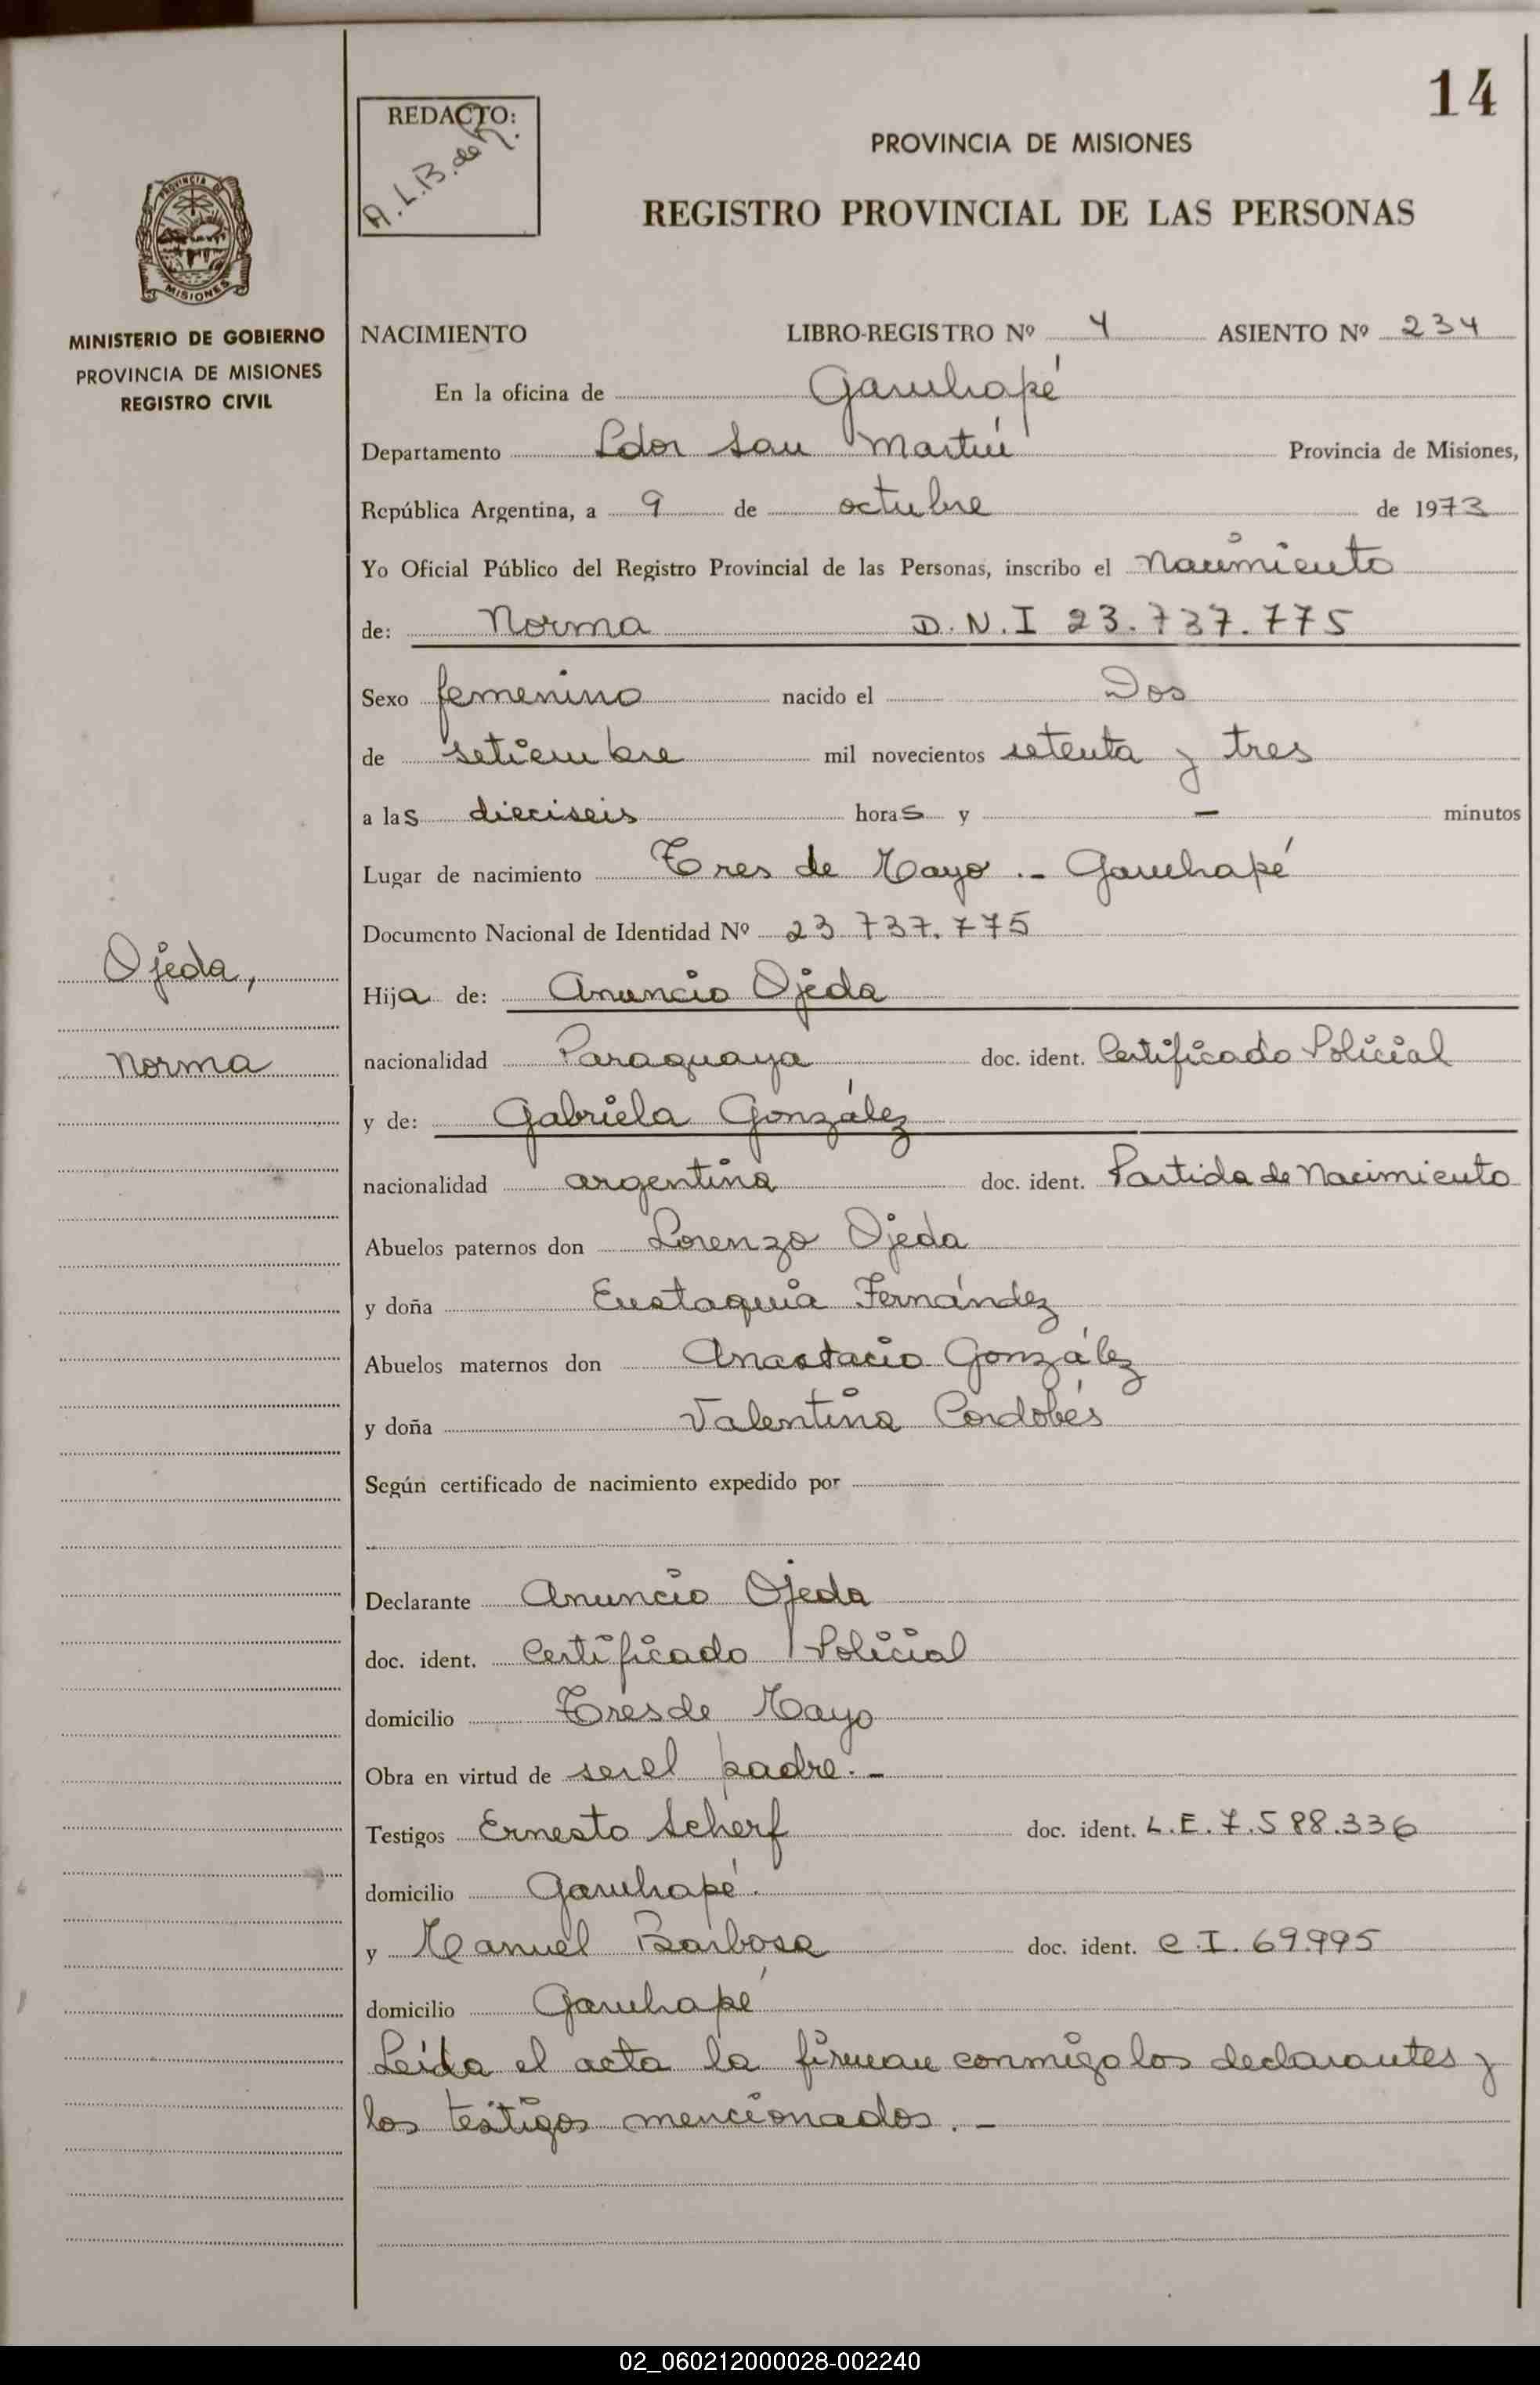 14
REDACTO:
A.L.B. de R.
PROVINCIA DE MISIONES
REGISTRO PROVINCIAL DE LAS PERSONAS
PROVINCIA DE
MISIONES
MINISTERIO DE GOBIERNO
PROVINCIA DE MISIONES
REGISTRO CIVIL
NACIMIENTO LIBRO-REGISTRO Nº 4 ASIENTO Nº 234
En la oficina de Garuhapé
Departamento Ldor San Martín Provincia de Misiones,
República Argentina, a 9 de octubre de 1973
Yo Oficial Público del Registro Provincial de las Personas, inscribo el Nacimiento
de: Norma D.N.I 23.737.775
Sexo femenino nacido el Dos
de setiembre mil novecientos setenta y tres
a las dieciseis horas y — minutos
Lugar de nacimiento Tres de Mayo .- Garuhapé
Documento Nacional de Identidad Nº 23 737.775
Ojeda,
Norma
Hija de: Anuncio Ojeda
nacionalidad Paraguaya doc. ident. Certificado Policial
y de: Gabriela González
nacionalidad argentina doc. ident. Partida de Nacimiento
Abuelos paternos don Lorenzo Ojeda
y doña Eustaquia Fernández
Abuelos maternos don Anastacio González
y doña Valentina Cordobés
Según certificado de nacimiento expedido por
Declarante Anuncio Ojeda
doc. ident. Certificado Policial
domicilio Tres de Mayo
Obra en virtud de ser el padre.-
Testigos Ernesto Scherf doc. ident. L.E. 7.588.336
domicilio Garuhapé.
y Manuel Barbosa doc. ident. C.I. 69.995
domicilio Garuhapé
Leída el acta la firman conmigo los declarantes y
los testigos mencionados.-
02_060212000028-002240